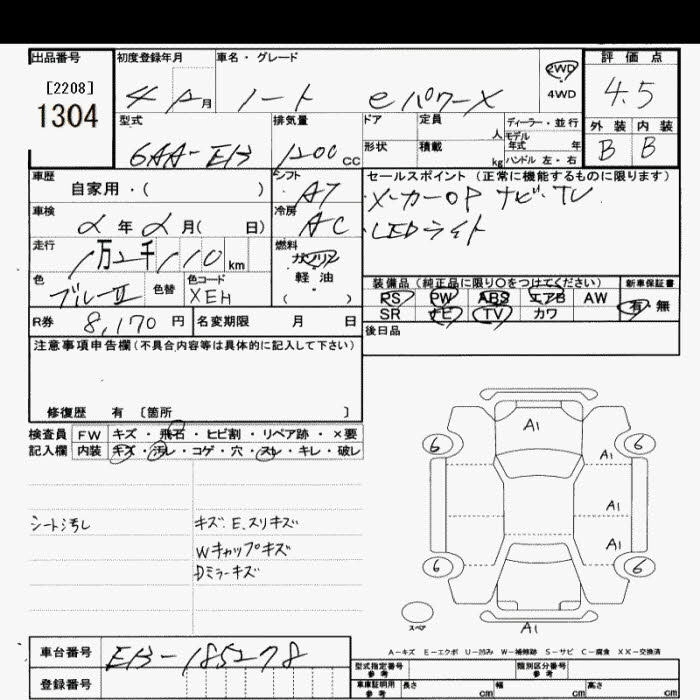 出品番号
[2208]
1304
初度登録年月
4年 月
車名・グレード
ノート eパワーX
2WD
4WD
評価点
4.5
外装 内装
B B
型式
6AA-E13
排気量
1200 CC
ドア
形状
定員 人
積載 kg
ディーラー・並行
モデル
年式 年
ハンドル 左・右
車歴
自家用・( )
シフト
AT
セールスポイント (正常に機能するものに限ります)
メーカーOP ナビ・TV
LEDライト
車検
年 月( 日)
冷房
AC
走行
1万2千110km
燃料
ガソリン
軽・油
( )
色
ブルーII
色替
色コード
XEH
装備品 (純正品に限り○をつけてください)
PS PW ABS エアB AW
SR ナビ TV カワ
新車保証書
有・無
R券 8,170 円
名変期限 月 日
後日品
注意事項申告欄 (不具合内容等は具体的に記入して下さい)
修復歴 有 〔箇所 〕
検査員 FW キズ・飛石・ヒビ割・リペア跡・×要
記入欄 内装 キズ・汚レ・コゲ・穴・スレ・キレ・破レ
シート汚し
キズ E.スリキズ
Wキャップキズ
Dミラーキズ
A1
6
6
A1
A1
A1
6
6
A1
スペア
A-キズ E-エクボ U-凹み W-補修跡 S-サビ C-腐食 XX-交換済
車台番号
E13-185278
登録番号
型式指定番号
参考
類別区分番号
参考
車庫証明用
参考
長さ cm
幅 cm
高さ cm